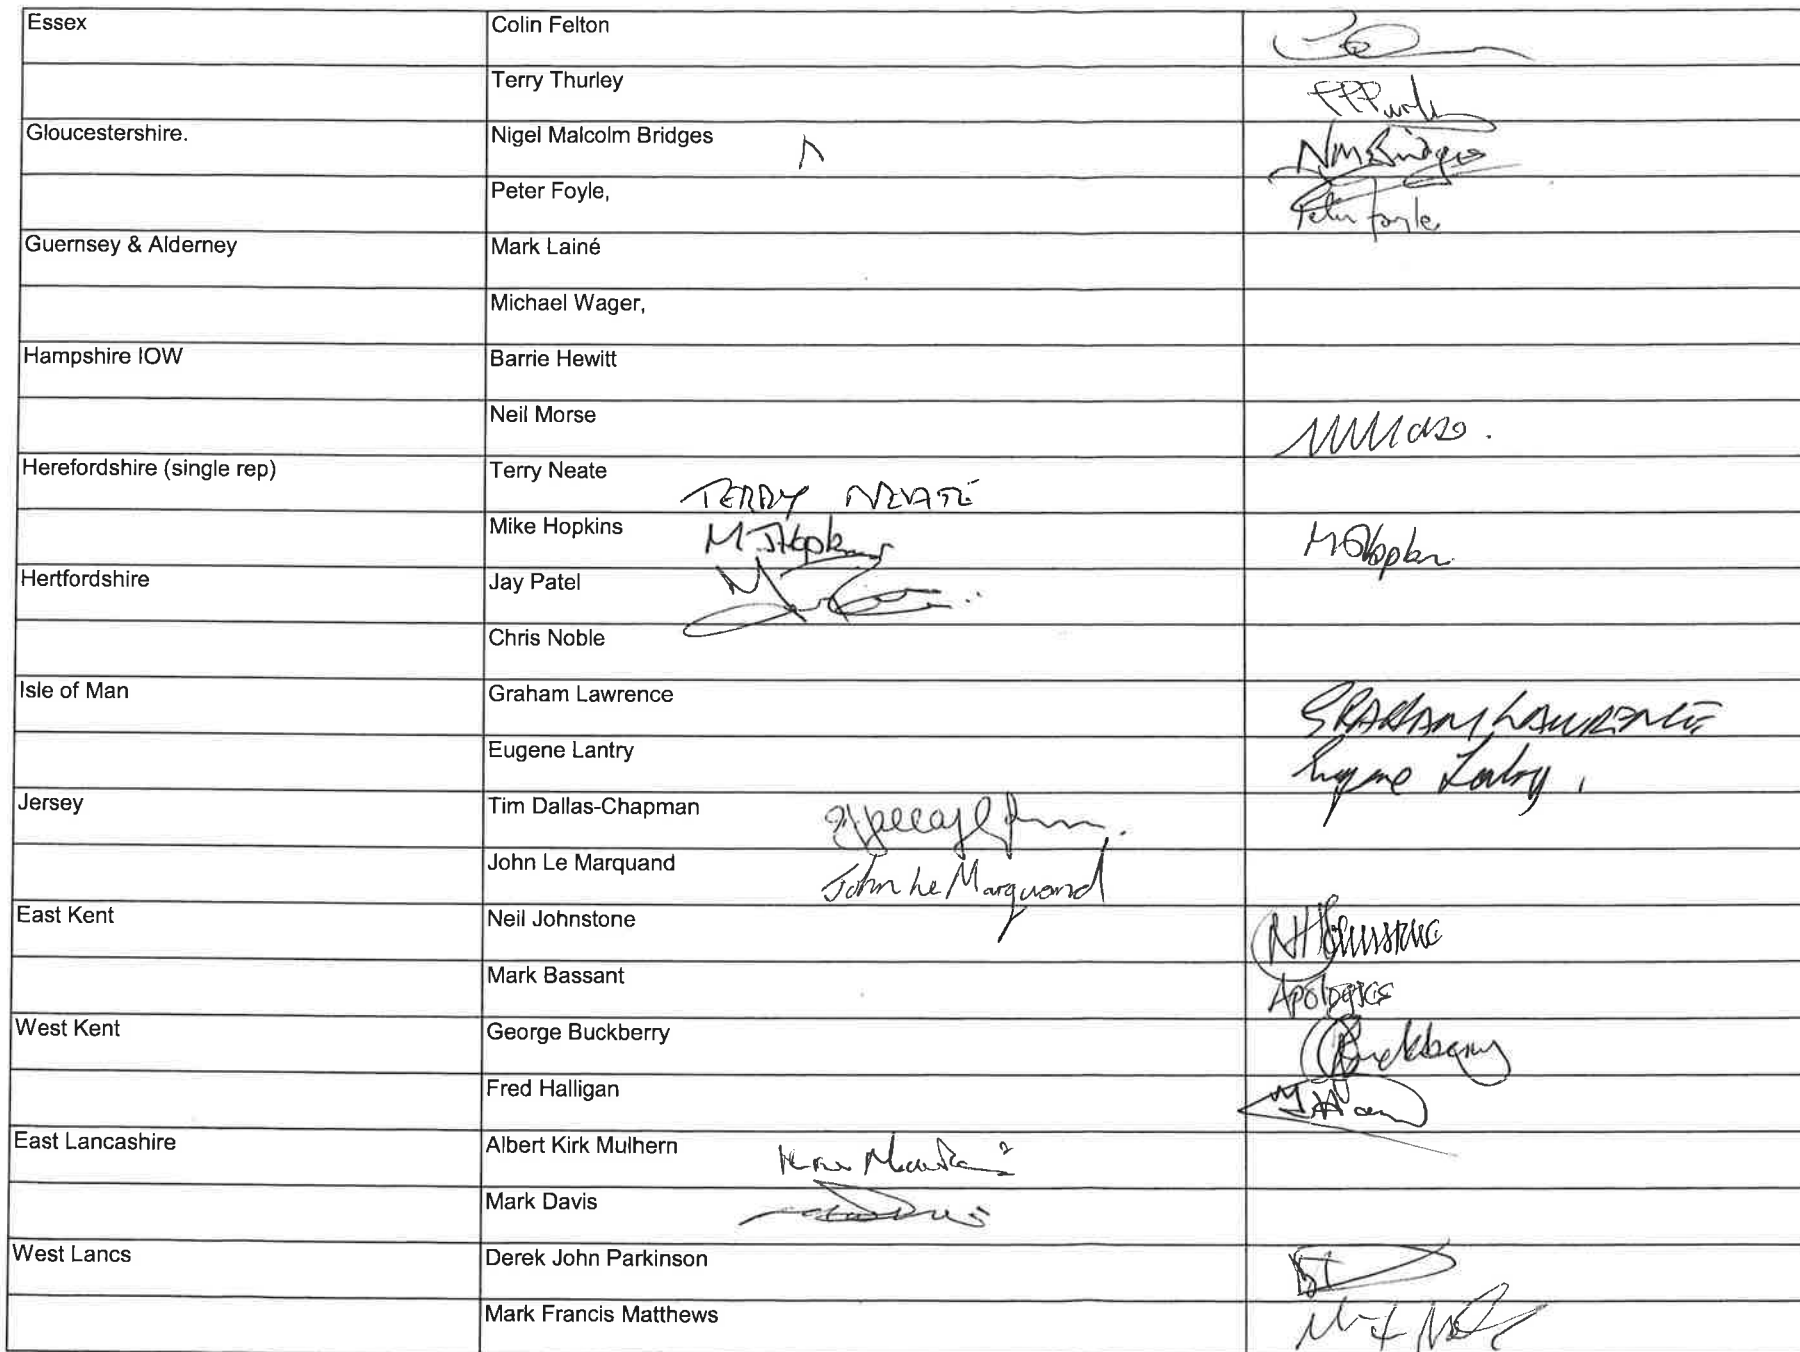 Essex Colin Felton
Terry Thurley
Gloucestershire. Nigel Malcolm Bridges NMBridges
Peter Foyle, Peter Foyle
Guernsey & Alderney Mark Lainé
Michael Wager,
Hampshire IOW Barrie Hewitt
Neil Morse
Herefordshire (single rep) Terry Neate TERRY NEATE
Mike Hopkins MJHopkins
Hertfordshire Jay Patel
Chris Noble
Isle of Man Graham Lawrence GRAHAM LAWRENCE
Eugene Lantry Eugene Lantry
Jersey Tim Dallas-Chapman
John Le Marquand John Le Marquand
East Kent Neil Johnstone NHJohnstone
Mark Bassant Apologies
West Kent George Buckberry GBuckberry
Fred Halligan
East Lancashire Albert Kirk Mulhern
Mark Davis
West Lancs Derek John Parkinson
Mark Francis Matthews